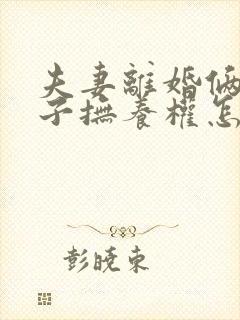 夫妻離婚倆
子撫養權怎
彭曉東